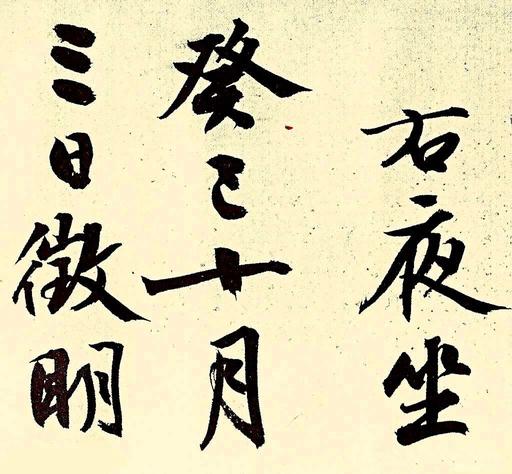 右夜坐
癸巳十月
三日徵明